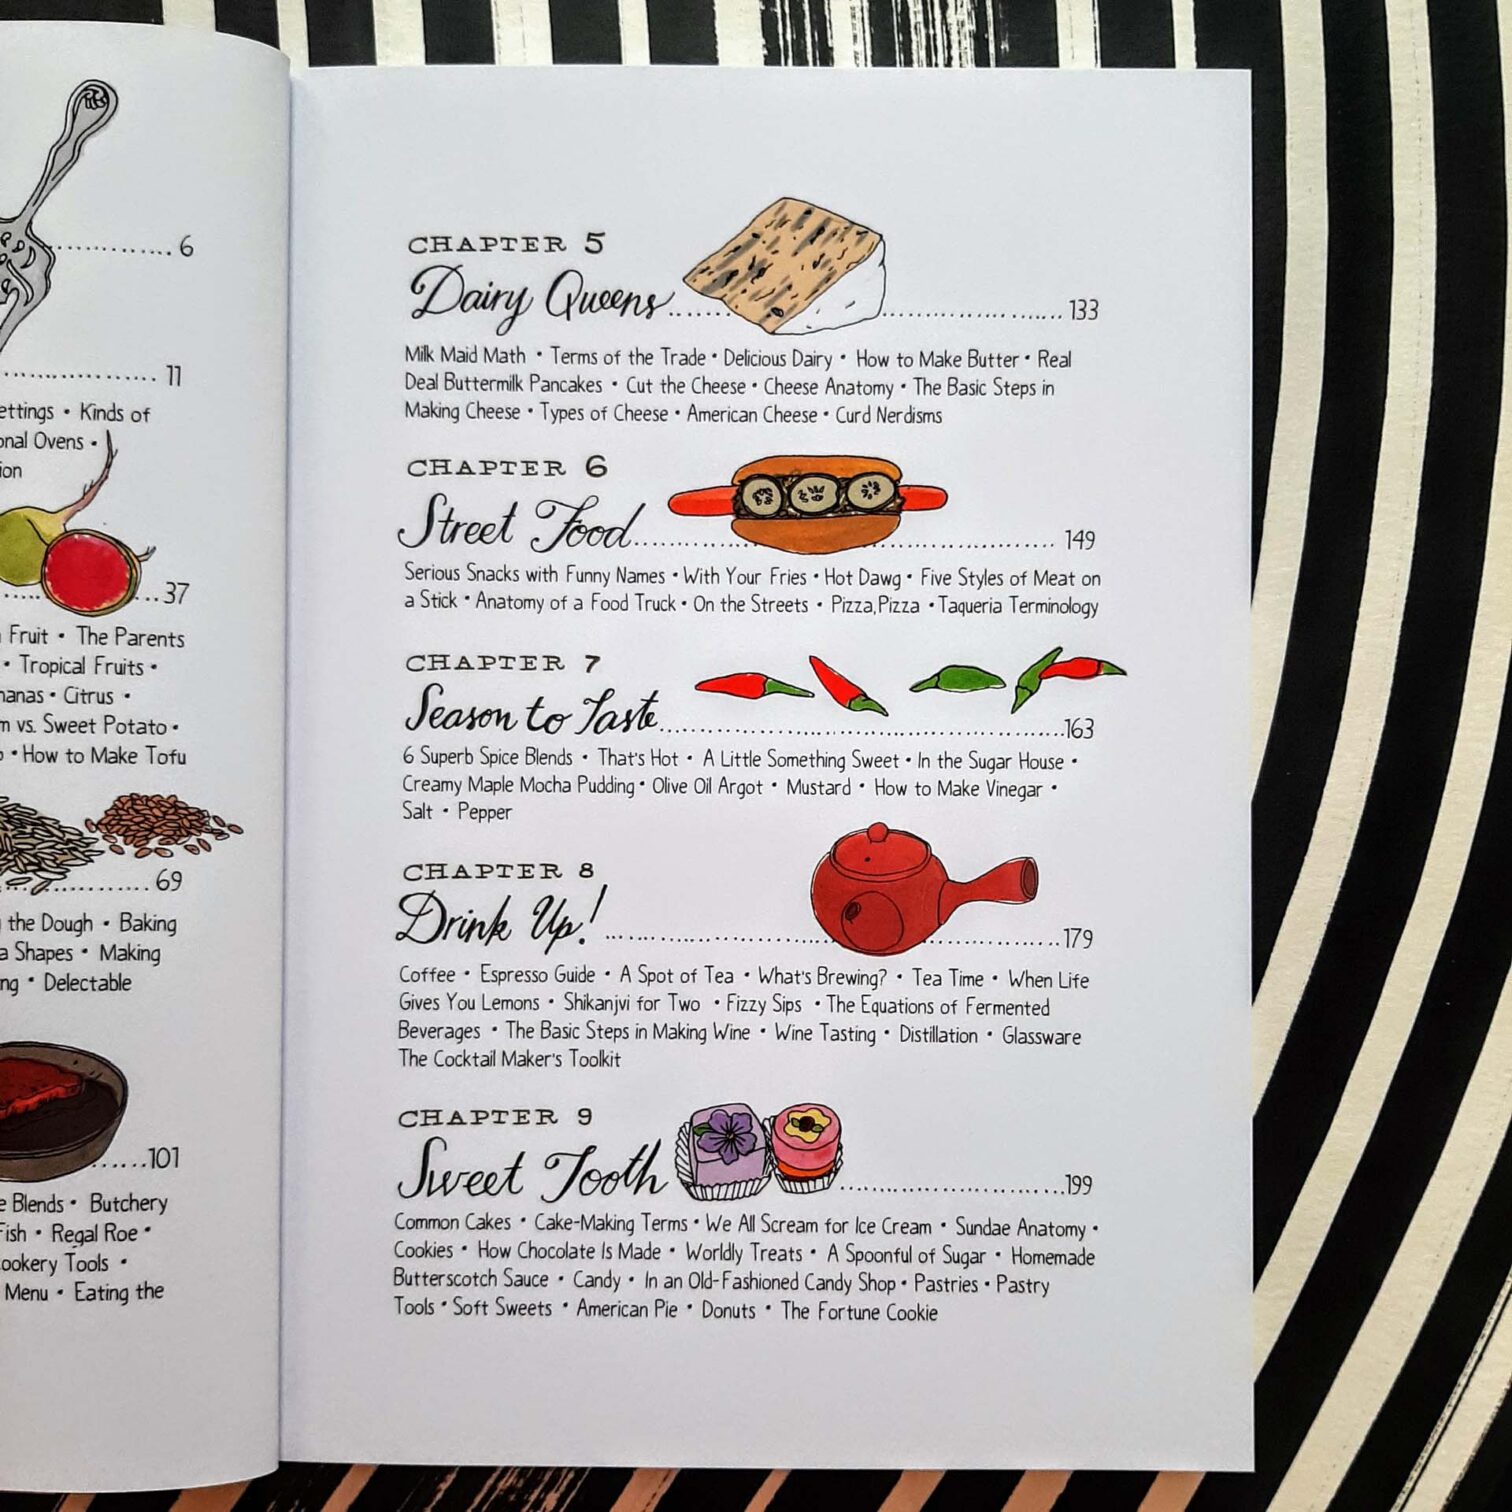 6
11
ettings • Kinds of
onal Ovens •
ion
37
Fruit • The Parents
• Tropical Fruits •
nanas • Citrus •
m vs. Sweet Potato •
• How to Make Tofu
69
the Dough • Baking
a Shapes • Making
ng • Delectable
101
e Blends • Butchery
Fish • Regal Roe •
ookery Tools •
Menu • Eating the
CHAPTER 5
Dairy Queens 133
Milk Maid Math • Terms of the Trade • Delicious Dairy • How to Make Butter • Real
Deal Buttermilk Pancakes • Cut the Cheese • Cheese Anatomy • The Basic Steps in
Making Cheese • Types of Cheese • American Cheese • Curd Nerdisms
CHAPTER 6
Street Food 149
Serious Snacks with Funny Names • With Your Fries • Hot Dawg • Five Styles of Meat on
a Stick • Anatomy of a Food Truck • On the Streets • Pizza,Pizza • Taqueria Terminology
CHAPTER 7
Season to Taste 163
6 Superb Spice Blends • That's Hot • A Little Something Sweet • In the Sugar House •
Creamy Maple Mocha Pudding • Olive Oil Argot • Mustard • How to Make Vinegar •
Salt • Pepper
CHAPTER 8
Drink Up! 179
Coffee • Espresso Guide • A Spot of Tea • What's Brewing? • Tea Time • When Life
Gives You Lemons • Shikanjvi for Two • Fizzy Sips • The Equations of Fermented
Beverages • The Basic Steps in Making Wine • Wine Tasting • Distillation • Glassware
The Cocktail Maker's Toolkit
CHAPTER 9
Sweet Tooth 199
Common Cakes • Cake-Making Terms • We All Scream for Ice Cream • Sundae Anatomy •
Cookies • How Chocolate Is Made • Worldly Treats • A Spoonful of Sugar • Homemade
Butterscotch Sauce • Candy • In an Old-Fashioned Candy Shop • Pastries • Pastry
Tools • Soft Sweets • American Pie • Donuts • The Fortune Cookie